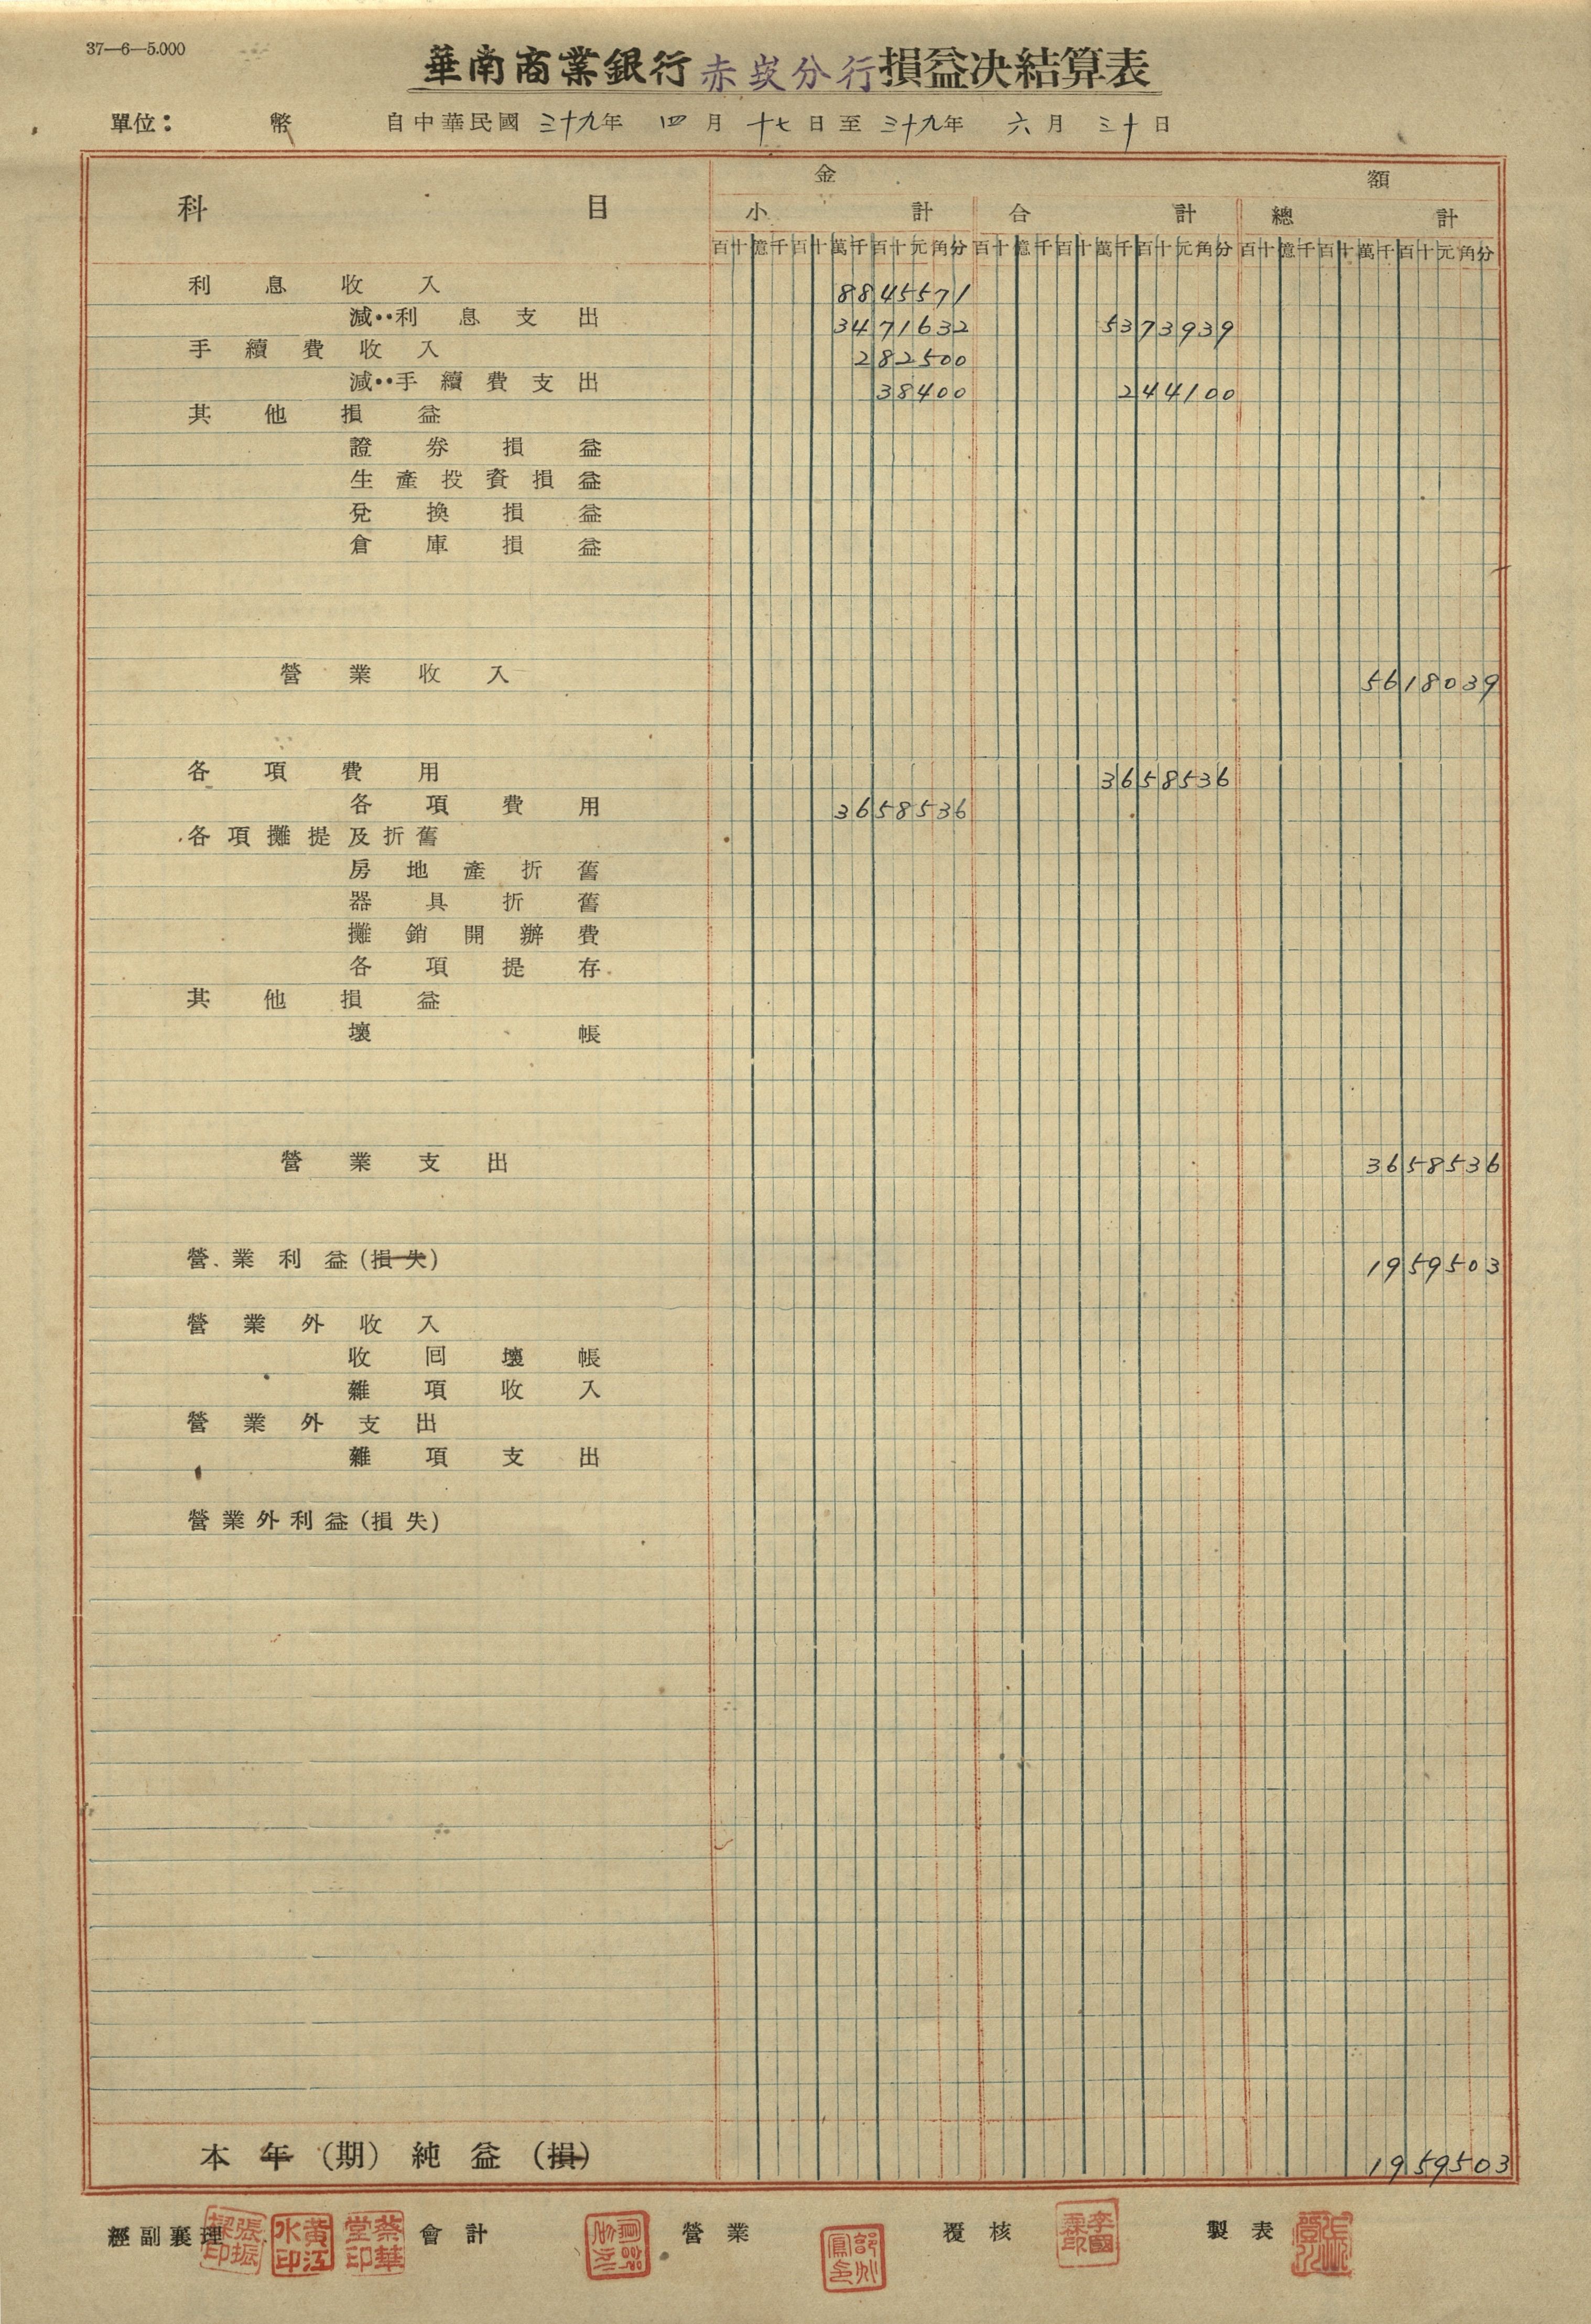 37—6—5.000
華南商業銀行赤崁分行損益決結算表
單位： 幣 自中華民國三十九年 四月十七日至三十九年 六月三十日
科目 金額
小計 合計 總計
百十億千百十萬千百十元角分 百十億千百十萬千百十元角分 百十億千百十萬千百十元角分
利息收入 8845571
減‥利息支出 3471632 5373939
手續費收入 282500
減‥手續費支出 38400 244100
其他損益
證券損益
生產投資損益
兌換損益
倉庫損益
營業收入 5618039
各項費用 3658536
各項費用 3658536
各項攤提及折舊
房地產折舊
器具折舊
攤銷開辦費
各項提存
其他損益
壞帳
營業支出 3658536
營業利益(損失) 1959503
營業外收入
收回壞帳
雜項收入
營業外支出
雜項支出
營業外利益(損失)
本年（期）純益（損） 1959503
經副襄理 黃江水印 蔡華堂印 會計 營業 覆核 製表